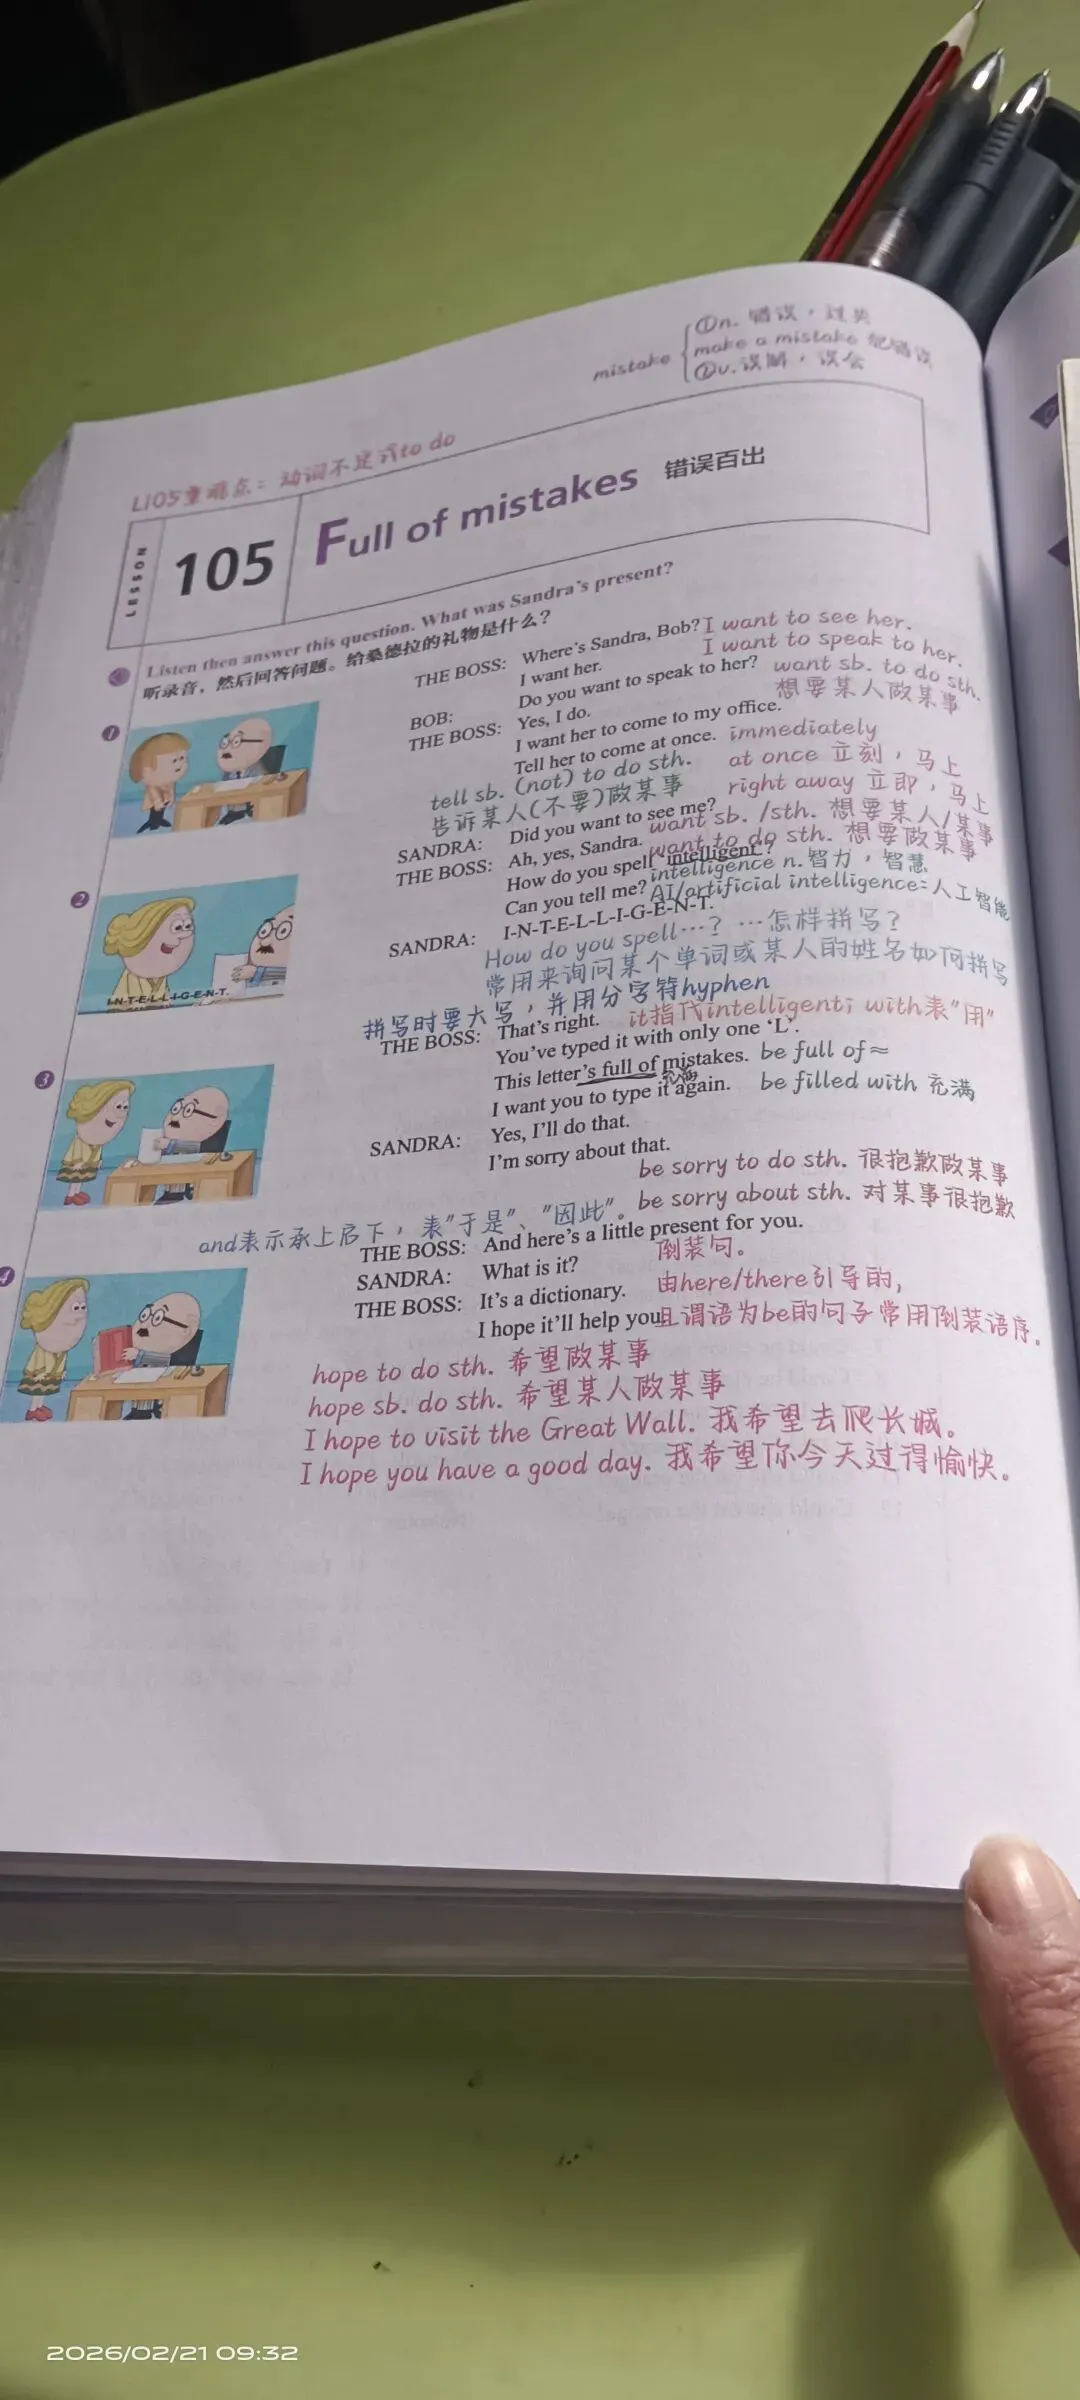 mistake ①n. 错误，过失
make a mistake 犯错误
②v. 误解，误会
L105重难点：动词不定式to do
LESSON
105
Full of mistakes 错误百出
Listen then answer this question. What was Sandra's present?
听录音，然后回答问题。给桑德拉的礼物是什么？
1
THE BOSS: Where's Sandra, Bob? I want to see her.
I want her. I want to speak to her.
BOB: Do you want to speak to her? want sb. to do sth.
THE BOSS: Yes, I do. 想要某人做某事
I want her to come to my office.
Tell her to come at once. immediately
tell sb. (not) to do sth. at once 立刻，马上
告诉某人(不要)做某事 right away 立即，马上
SANDRA: Did you want to see me? want sb. /sth. 想要某人/某事
THE BOSS: Ah, yes, Sandra. want to do sth. 想要做某事
2
How do you spell 'intelligent'? intelligence n. 智力，智慧
Can you tell me? AI/artificial intelligence=人工智能
SANDRA: I-N-T-E-L-L-I-G-E-N-T.
How do you spell…? …怎样拼写？
常用来询问某个单词或某人的姓名如何拼写
I-N-T-E-L-L-I-G-E-N-T.
拼写时要大写，并用分字符hyphen
THE BOSS: That's right. it指代intelligent; with表"用"
You've typed it with only one 'L'.
3
This letter's full of mistakes. be full of≈
充满
I want you to type it again. be filled with 充满
SANDRA: Yes, I'll do that.
I'm sorry about that.
be sorry to do sth. 很抱歉做某事
be sorry about sth. 对某事很抱歉
and表示承上启下，表"于是"、"因此"。
THE BOSS: And here's a little present for you.
4
SANDRA: What is it? 倒装句。
THE BOSS: It's a dictionary. 由here/there引导的，
I hope it'll help you 且谓语为be的句子常用倒装语序。
hope to do sth. 希望做某事
hope sb. do sth. 希望某人做某事
I hope to visit the Great Wall. 我希望去爬长城。
I hope you have a good day. 我希望你今天过得愉快。
2026/02/21 09:32